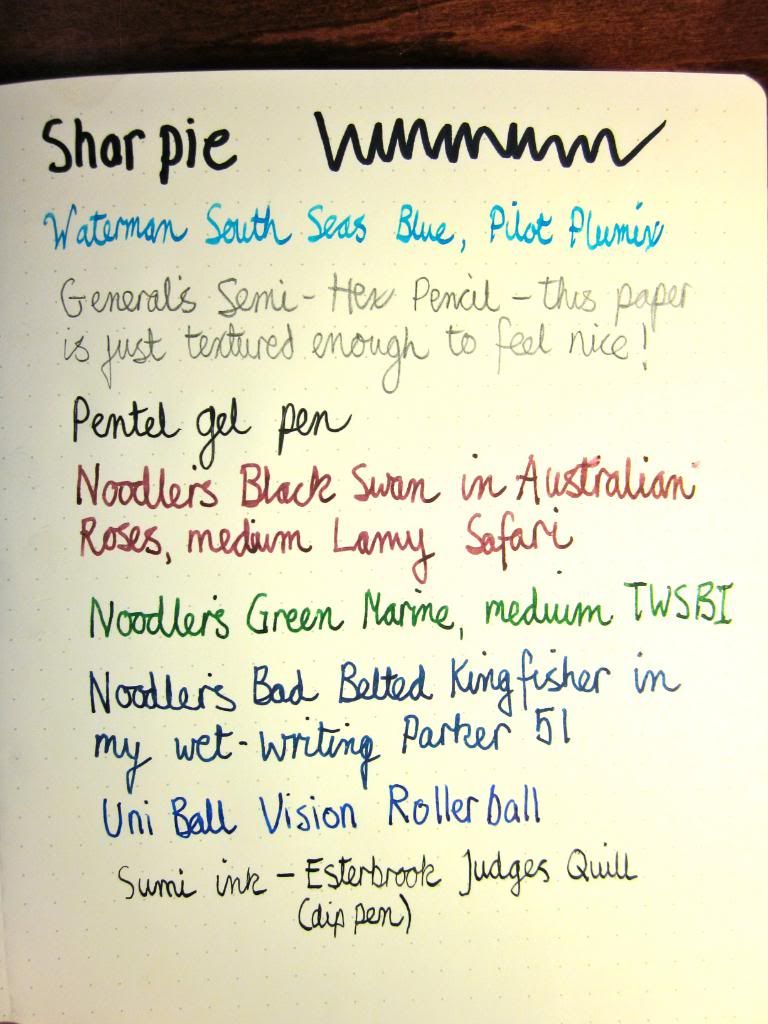 Sharpie
Waterman South Seas Blue, Pilot Plumix
General's Semi-Hex Pencil - this paper
is just textured enough to feel nice!
Pentel gel pen
Noodler's Black Swan in Australian
Roses, medium Lamy Safari
Noodler's Green Marine, medium TWSBI
Noodler's Bad Belted Kingfisher in
my wet-writing Parker 51
Uni Ball Vision Rollerball
Sumi ink - Esterbrook Judges Quill
(dip pen)